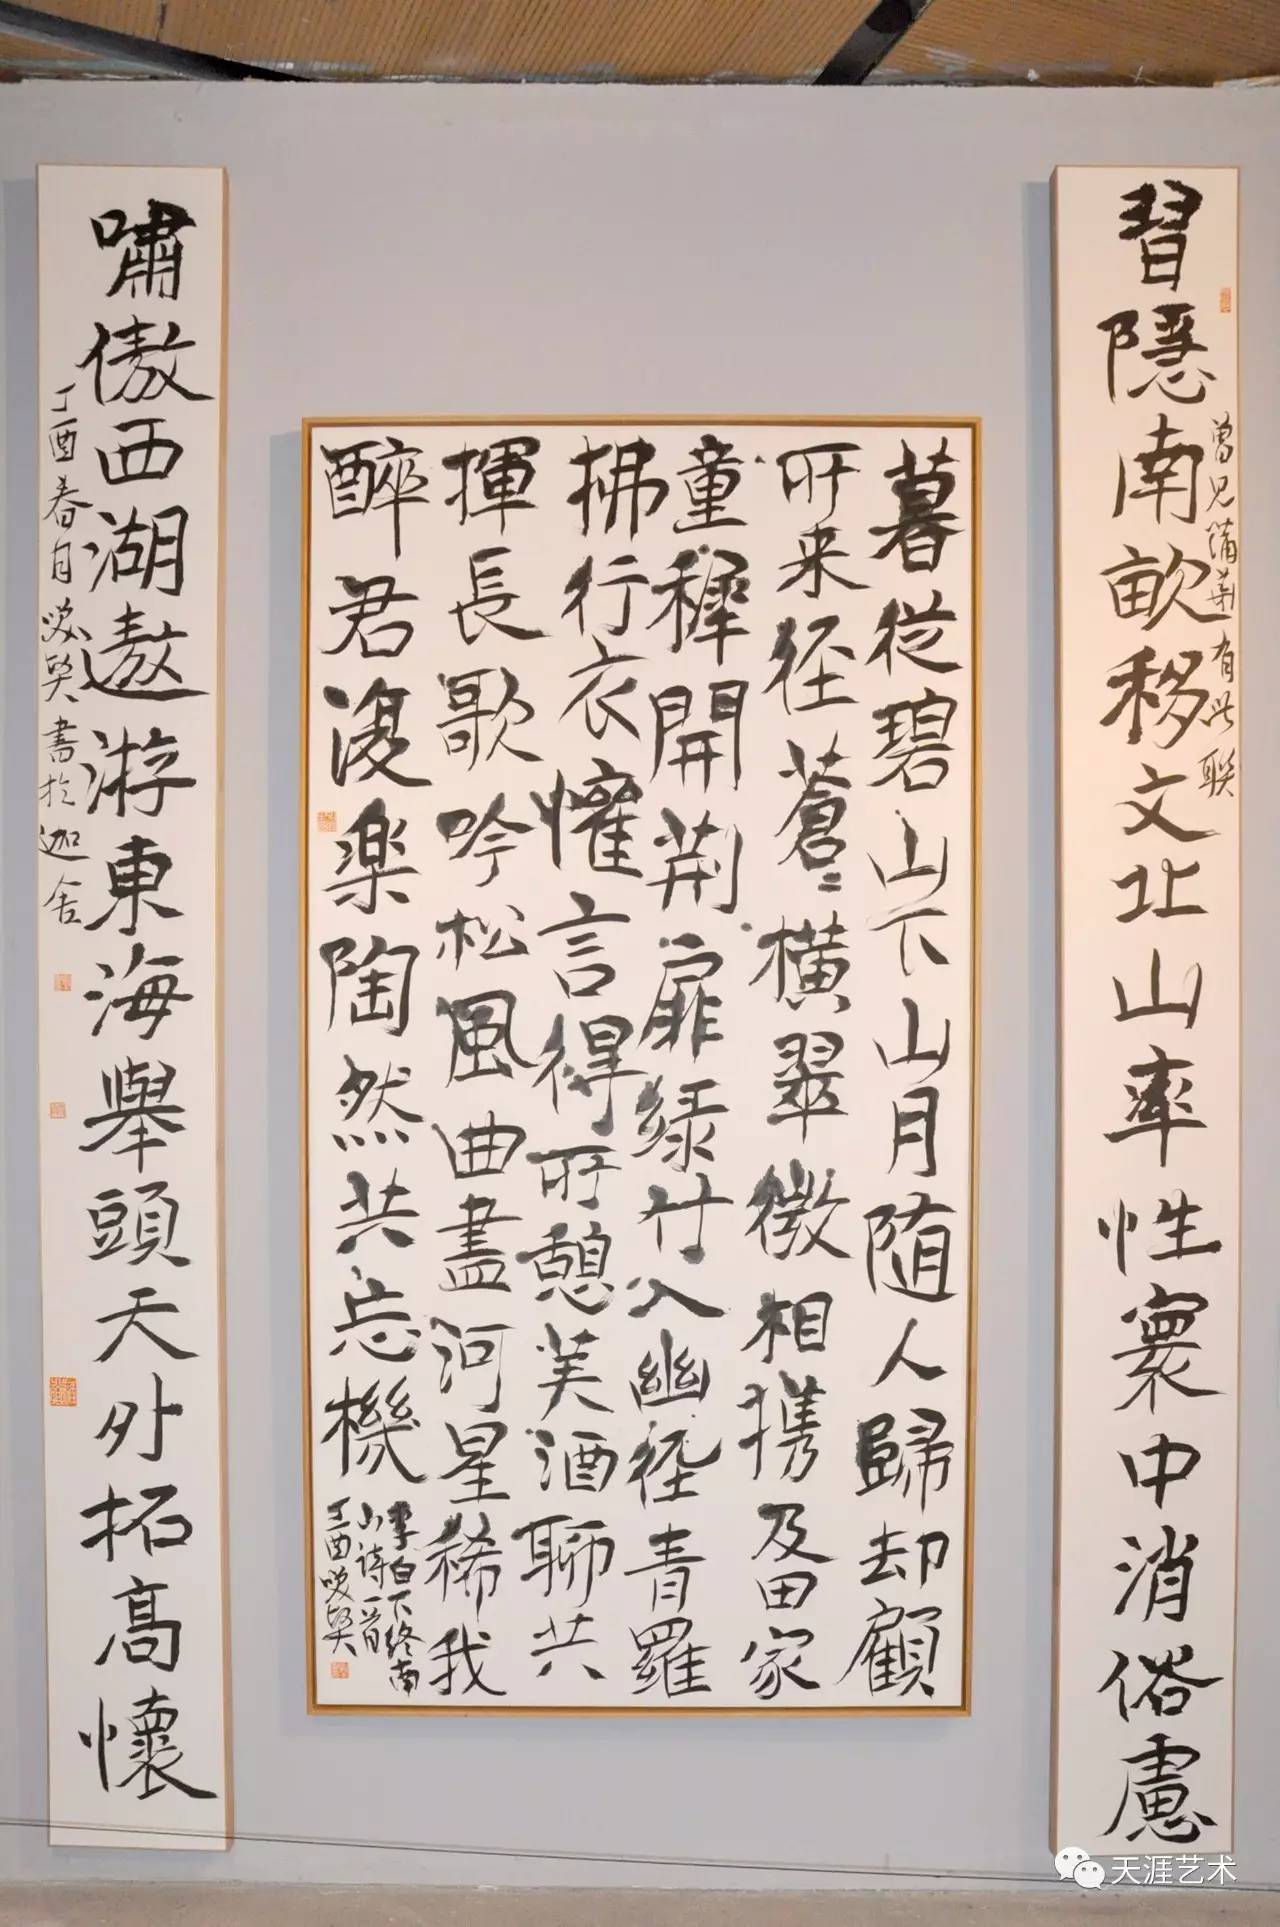 習隱南畝移文北山率性寰中消俗慮
曾見蒲華有此联
暮從碧山下山月随人歸却顧
所来径蒼〻橫翠微相携及田家
童稺開荆扉緑竹入幽径青羅
拂行衣懽言得所憩美酒聊共
揮長歌吟松風曲盡河星稀我
醉君復楽陶然共忘機
李白下终南
山诗一首
丁酉
嘯傲西湖遨游東海舉頭天外拓高懷
丁酉春月書於迦舍
天涯艺术